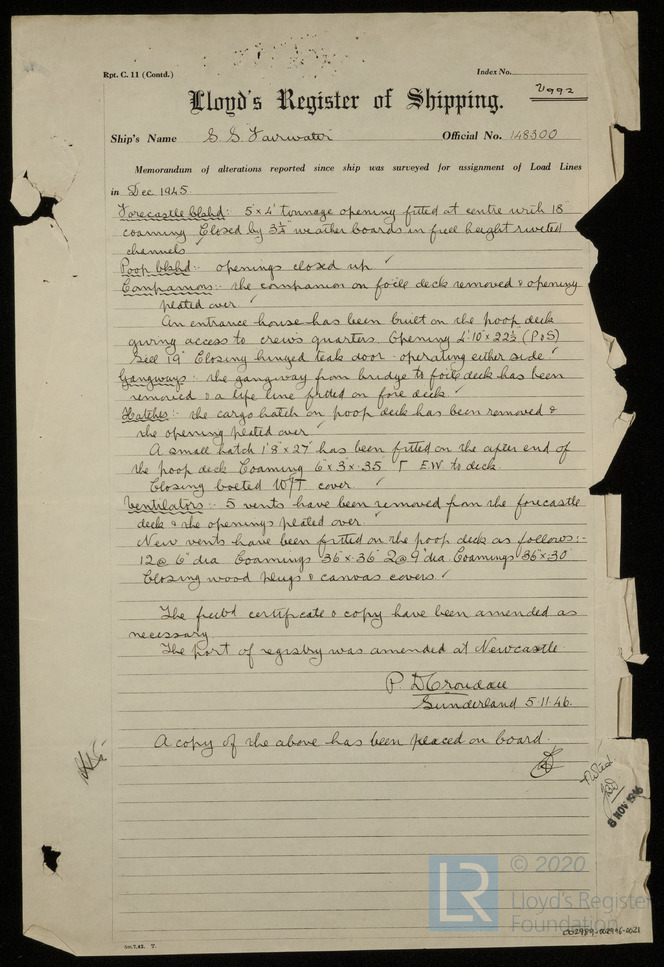 Rpt. C. 11 (Contd.)
Index No.
V992
Lloyd's Register of Shipping.
Ship's Name S.S. Fairwater Official No. 148300
Memorandum of alterations reported since ship was surveyed for assignment of Load Lines
in Dec 1945.
Forecastle blkhd: 5'x4' tonnage opening fitted at centre with 18"
coaming Closed by 3¼" weather boards in full height riveted
channels
Poop blkhd:- openings closed up
Companions:- the companion on fo'cle deck removed & opening
plated over.
An entrance house has been built on the poop deck
giving access to crews quarters. Opening 4'10" x 22½ (P & S)
Sill 19" Closing hinged teak door - operating either side
Gangways: the gangway from bridge to fo'cle deck has been
removed & a life line fitted on fore deck
Hatches:- the cargo hatch on poop deck has been removed &
the opening plated over
A small hatch 1'8" x 27" has been fitted on the after end of
the poop deck Coaming 6" x 3" x .35 E.W to deck.
Closing bolted W/T cover.
Ventilators:- 5 vents have been removed from the forecastle
deck & the openings plated over
New vents have been fitted on the poop deck as follows:-
12 @ 6" dia Coamings 36" x .36" 2 @ 9" dia Coamings 36" x .30
Closing wood plugs & canvas covers.
The freebd certificate & copy have been amended as
necessary.
The port of registry was amended at Newcastle.
P. D. Croudace
Sunderland 5.11.46.
A copy of the above has been placed on board.
Noted
8 NOV 1946
© 2020
LR
Lloyd's Register
Foundation
5m.7,42. T.
002989-002996-0021